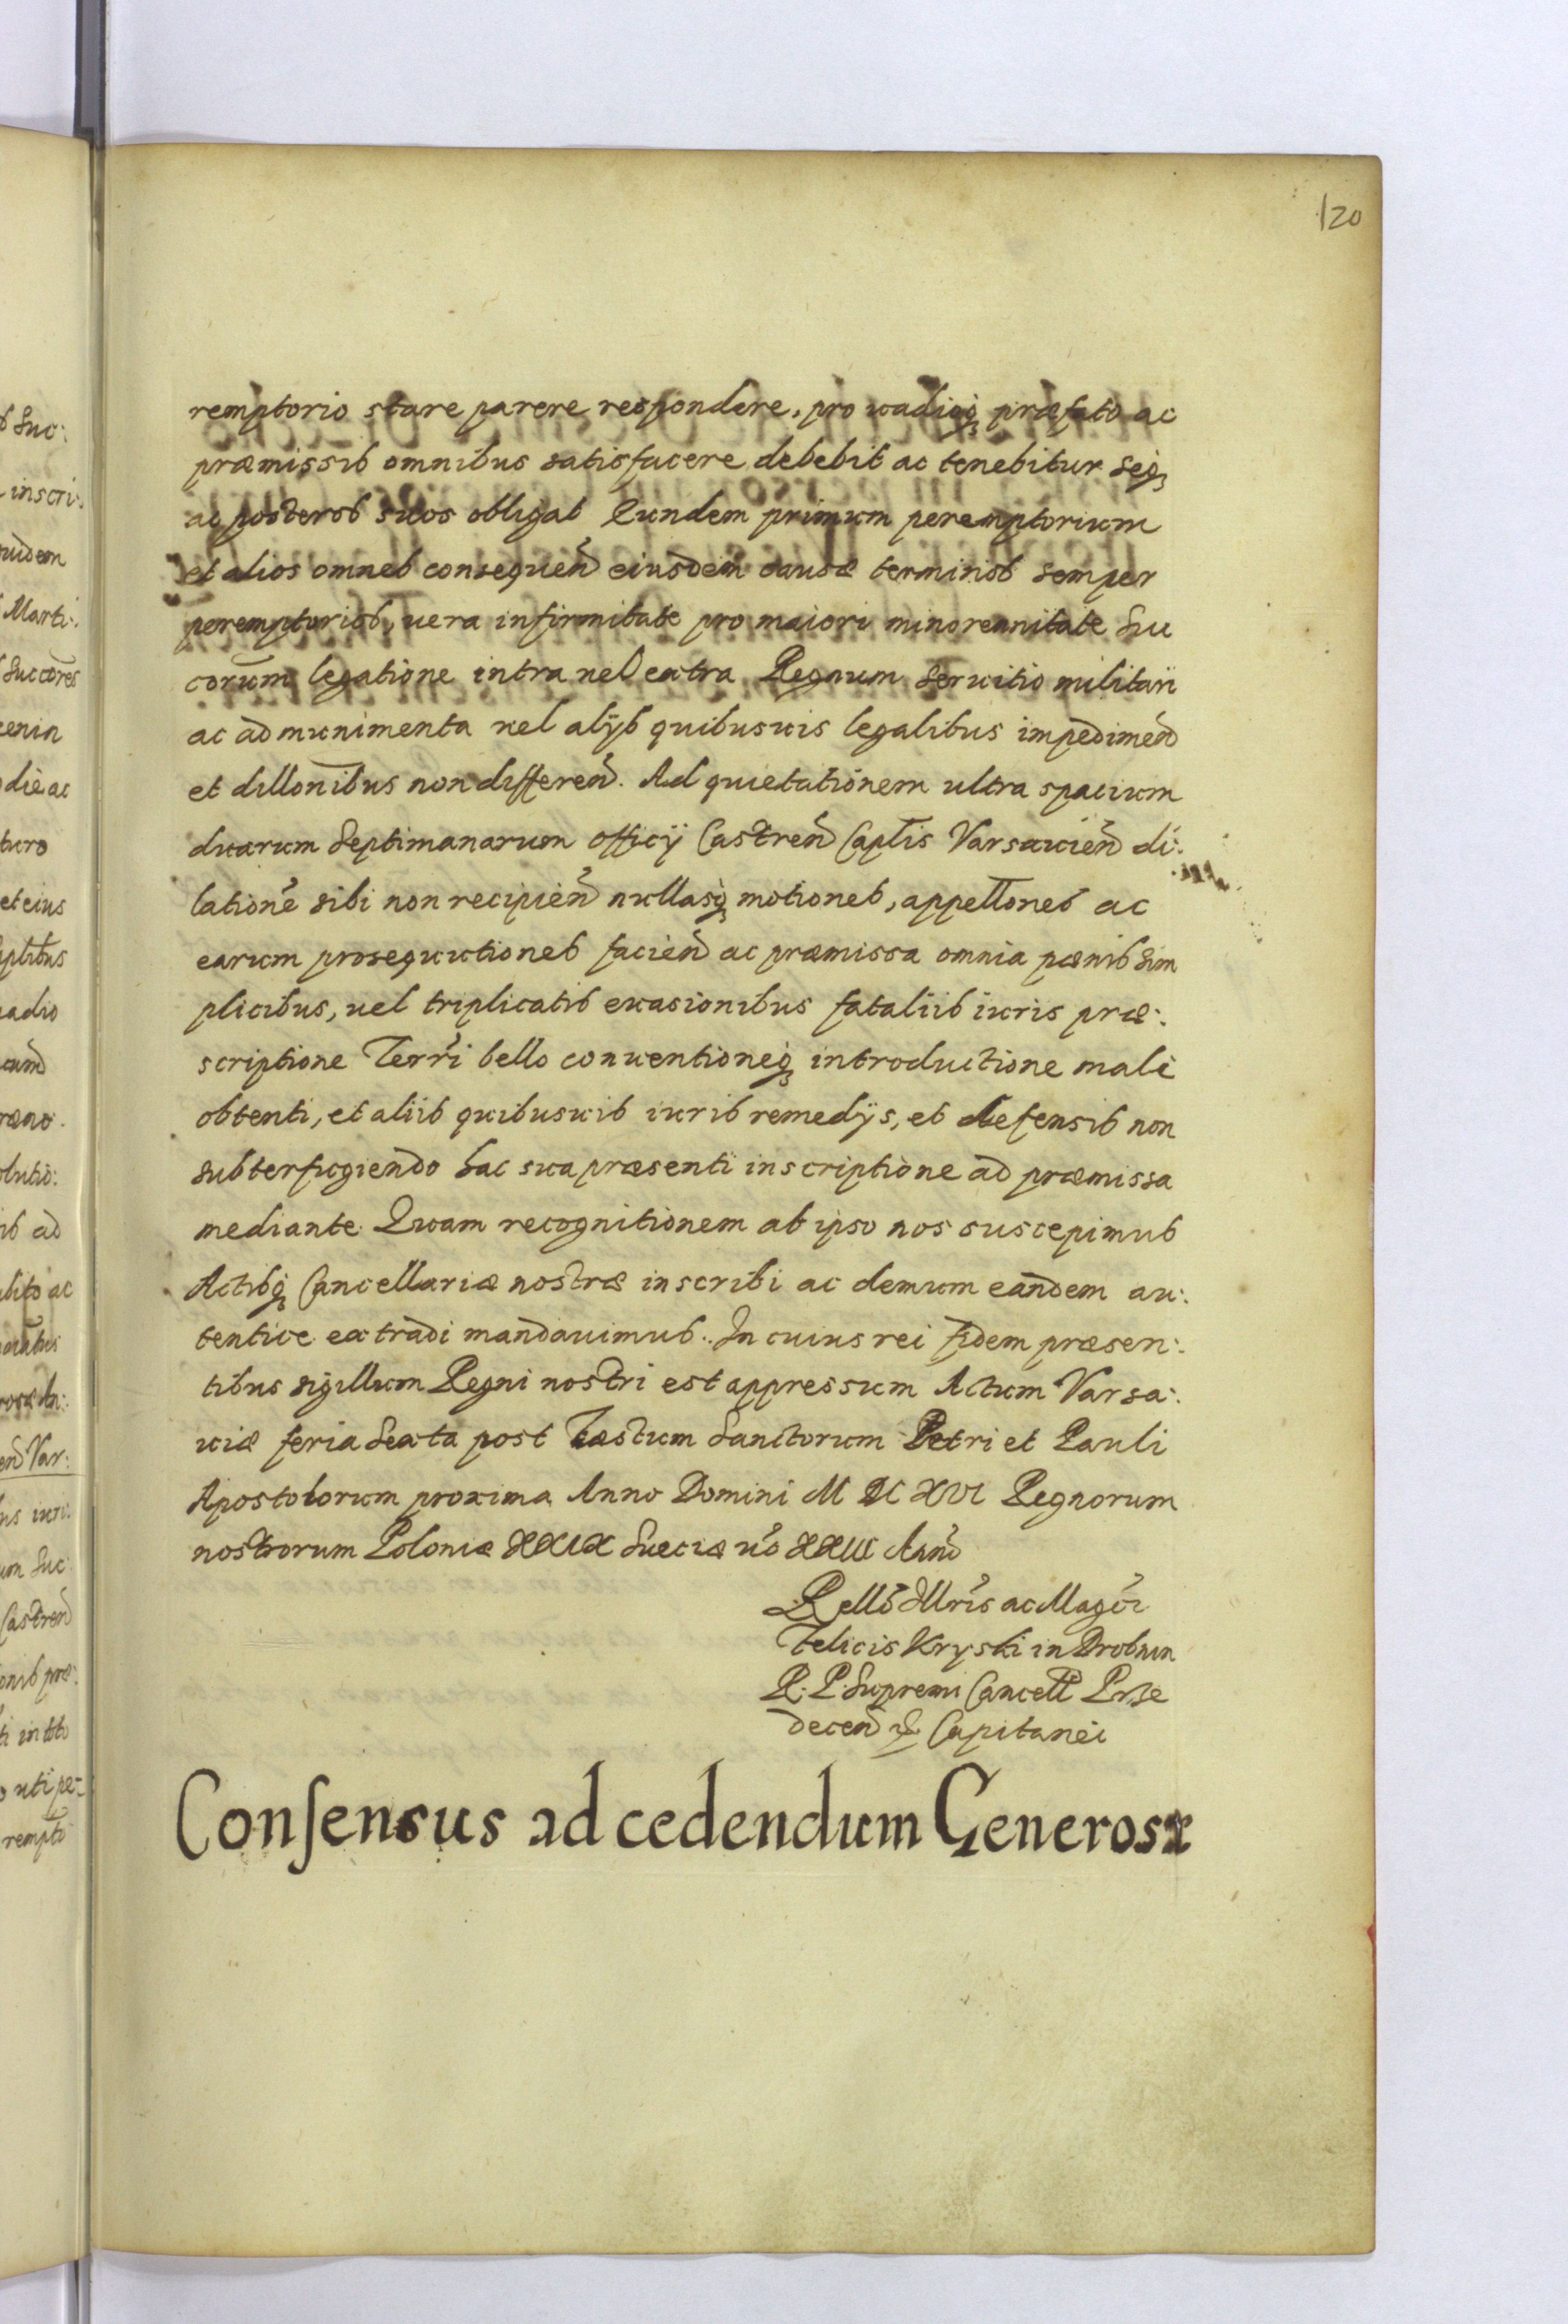 120
remptorio stare parere respondere, pro vadioq præfato ac
præmissis omnibus satisfacere debebit ac tenebitur seq
ac posteros suos obligat Eundem primum peremptorium
et alios omnes consequen̄ eiusdem causæ terminos semper
peremptorios, vera infirmitate pro maiori minoreannitate Suc
corum legatione intra vel extra Regnum servitio militari
ac ad munimenta vel alijs quibusvis legalibus impedimen̄
et dillonibus non differen̄. Ad quietationem ultra spacium
duarum Septimanarum officij Castren̄ Captlis Varsavien̄ di:
latione sibi non recipien̄ nullasq motiones, appellones ac
earum prosequutiones facien̄ ac præmissa omnia pænis Sim
plicibus, vel triplicatis evasionibus fataliis iuris præ:
scriptione Terri bello conventioneq introductione mali
obtenti, et aliis quibusvis iuris remedijs, et defensis non
subterfugiendo hac sua præsenti inscriptione ad præmissa
mediante. Quam recognitionem ab ipso nos suscepimus
Actisq Cancellariæ nostræ inscribi ac demum eandem au:
tentice extradi mandavimus. In cuius rei fidem præsen:
tibus sigillum Regni nostri est appressum Actum Varsa:
viæ feria Sexta post Fæstum Sanctorum Petri et Pauli
Apostolorum proxima Anno Domini M DC XVI Regnorum
nostrorum Poloniæ XXIX Sueciæ vo XXIII Ann̄
Rello Illris ac Magci
Felicis Kryski in Drobnin
R. P. Supremi Cancell
decen̄ Capitanei
Consensus ad cedendum Generosæ